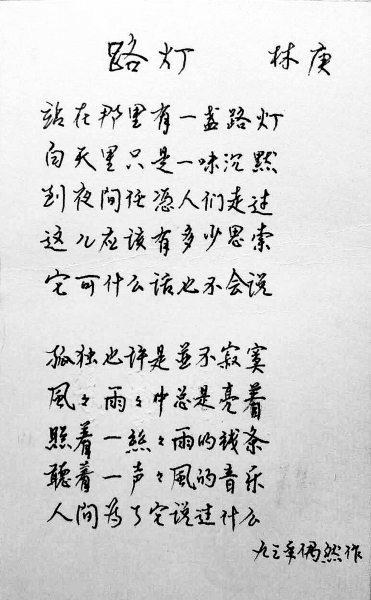 路灯 林庚
站在那里有一盏路灯
白天里只是一味沉默
到夜间任憑人们走过
这儿应该有多少思索
它可什么话也不会说
孤独也许是並不寂寞
風々雨々中总是亮着
照着一絲々雨的线条
聽着一声々風的音乐
人间為了它说过什么
九三年偶然作